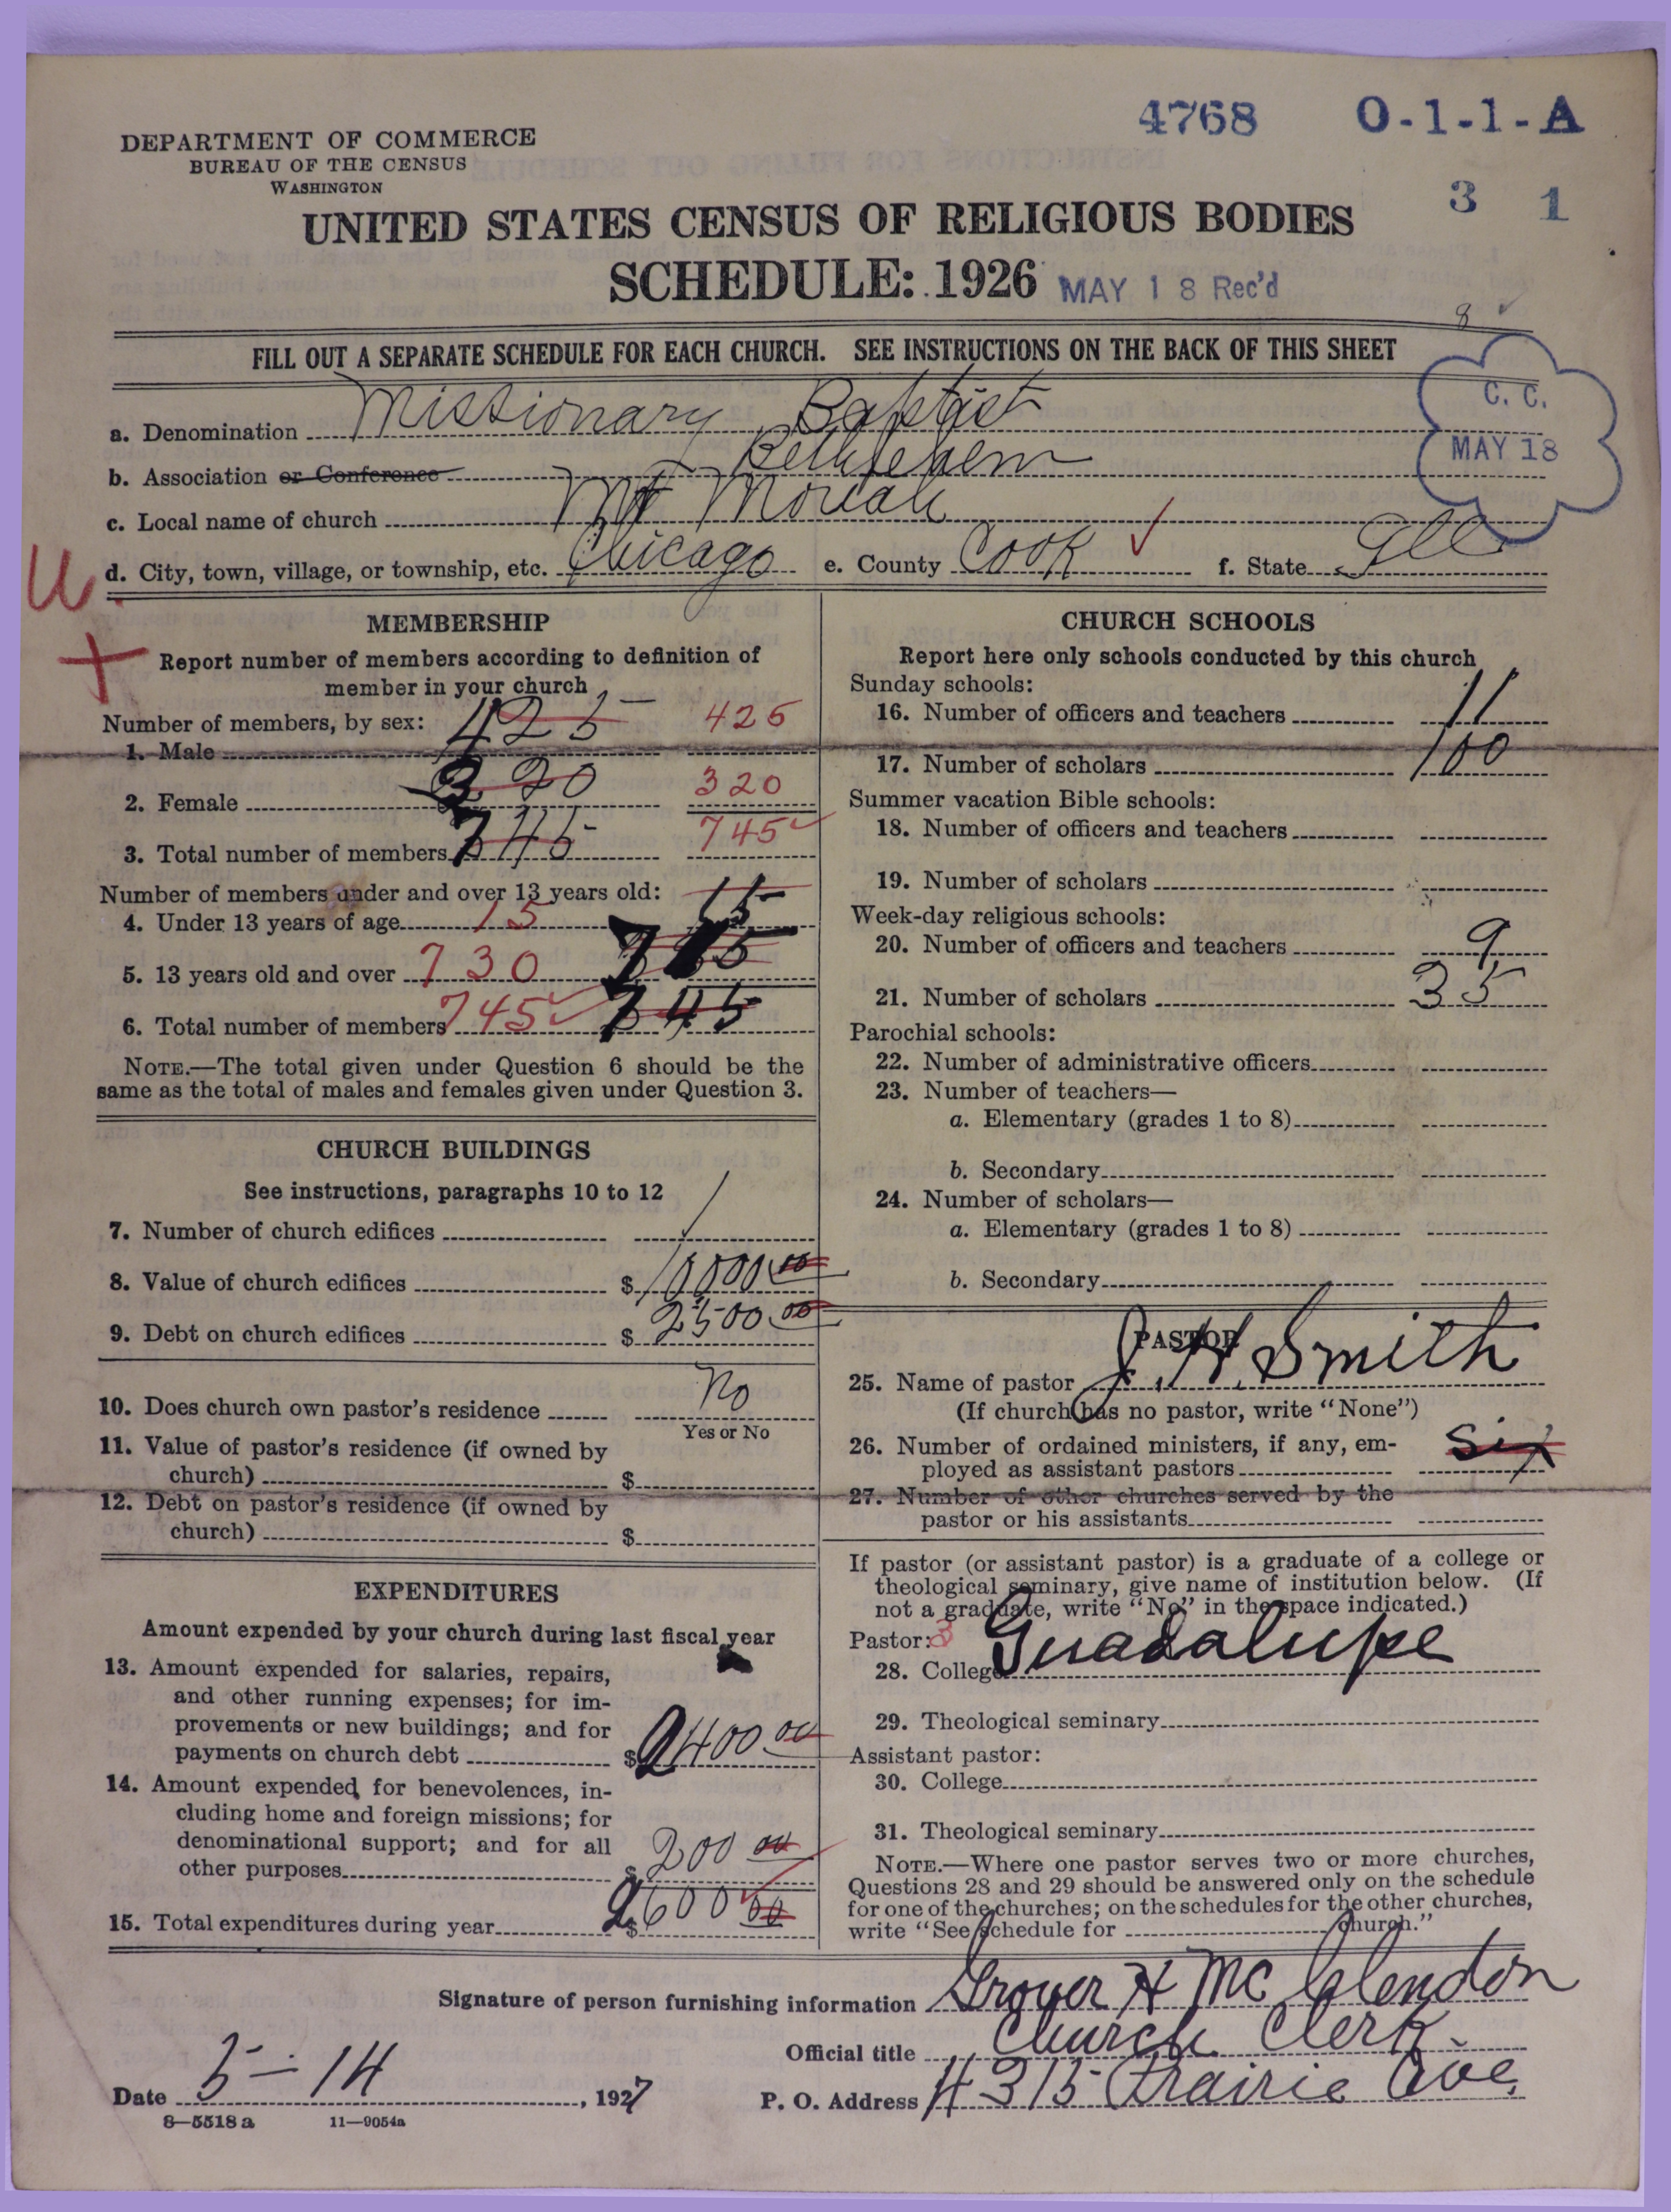 4768 O-1-1-A
DEPARTMENT OF COMMERCE
BUREAU OF THE CENSUS
WASHINGTON
3 1
UNITED STATES CENSUS OF RELIGIOUS BODIES
SCHEDULE: 1926 MAY 18 Rec'd
8
FILL OUT A SEPARATE SCHEDULE FOR EACH CHURCH. SEE INSTRUCTIONS ON THE BACK OF THIS SHEET
C. C.
MAY 18
a. Denomination Missionary Baptist
b. Association or Conference Bethlehem
c. Local name of church Mt Moriah
d. City, town, village, or township, etc. Chicago e. County Cook f. State Ill
U.
MEMBERSHIP
Report number of members according to definition of
member in your church
Number of members, by sex:
1. Male 425 425
2. Female 320 320
3. Total number of members 745 745
Number of members under and over 13 years old:
4. Under 13 years of age 15 15
5. 13 years old and over 730
6. Total number of members 745 745
NOTE.—The total given under Question 6 should be the
same as the total of males and females given under Question 3.
CHURCH BUILDINGS
See instructions, paragraphs 10 to 12
7. Number of church edifices 1
8. Value of church edifices $ 10000 00
9. Debt on church edifices $ 2500 00
10. Does church own pastor's residence No
Yes or No
11. Value of pastor's residence (if owned by
church) $
12. Debt on pastor's residence (if owned by
church) $
EXPENDITURES
Amount expended by your church during last fiscal year
13. Amount expended for salaries, repairs,
and other running expenses; for im-
provements or new buildings; and for
payments on church debt $ 2400 00
14. Amount expended for benevolences, in-
cluding home and foreign missions; for
denominational support; and for all
other purposes $ 200 00
15. Total expenditures during year $ 2600 00
CHURCH SCHOOLS
Report here only schools conducted by this church
Sunday schools:
16. Number of officers and teachers 11
17. Number of scholars 100
Summer vacation Bible schools:
18. Number of officers and teachers
19. Number of scholars
Week-day religious schools:
20. Number of officers and teachers 9
21. Number of scholars 35
Parochial schools:
22. Number of administrative officers
23. Number of teachers—
a. Elementary (grades 1 to 8)
b. Secondary
24. Number of scholars—
a. Elementary (grades 1 to 8)
b. Secondary
PASTOR
25. Name of pastor J. H. Smith
(If church has no pastor, write "None")
26. Number of ordained ministers, if any, em-
ployed as assistant pastors Six
27. Number of other churches served by the
pastor or his assistants
If pastor (or assistant pastor) is a graduate of a college or
theological seminary, give name of institution below. (If
not a graduate, write "No" in the space indicated.)
Pastor: 3
28. College Guadalupe
29. Theological seminary
Assistant pastor:
30. College
31. Theological seminary
NOTE.—Where one pastor serves two or more churches,
Questions 28 and 29 should be answered only on the schedule
for one of the churches; on the schedules for the other churches,
write "See schedule for church."
Signature of person furnishing information Grover H McClendon
Official title Church Clerk
Date 5-14, 1927 P. O. Address 4315 Prairie Ave.
8—5518 a 11—9054a